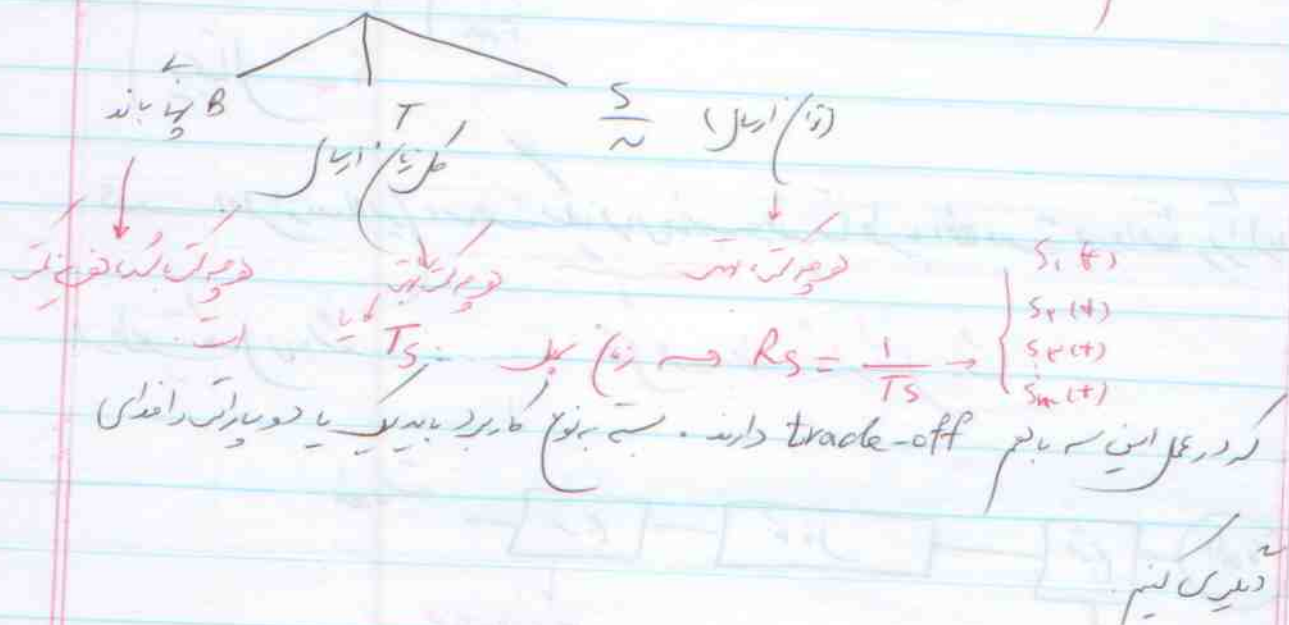 پهنای باند B
T
کل زمان ارسال
S/N (توان ارسال)
هرچه کمتر باشد
هرچه کمتر بهتر
هرچه کمتر بهتر
است.
یا
Ts زمان سمبل → Rs = 1/Ts → { S۱(t)
S۲(t)
S۳(t)
Sm(t)
که در عمل این سه باهم trade-off دارند. بسته به نوع کاربرد باید یک یا دو پارامتر را فدای
دیگری کنیم.